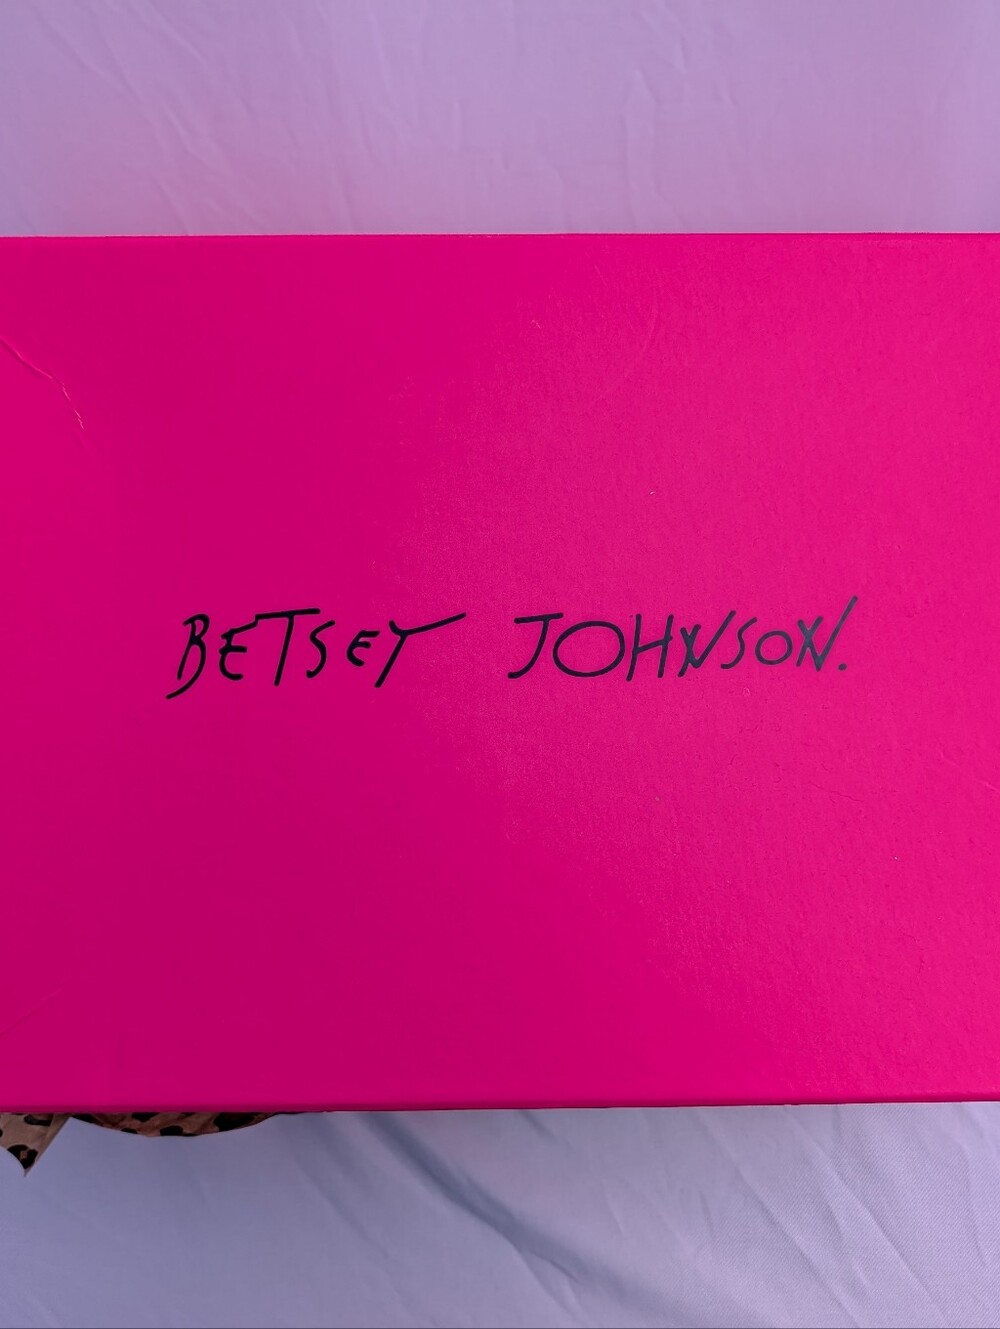 BETSEY JOHNSON.